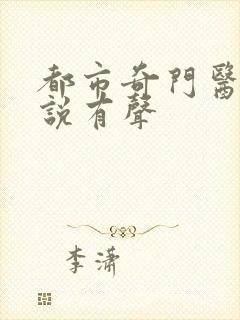 都市奇門醫
說有聲
李瀟